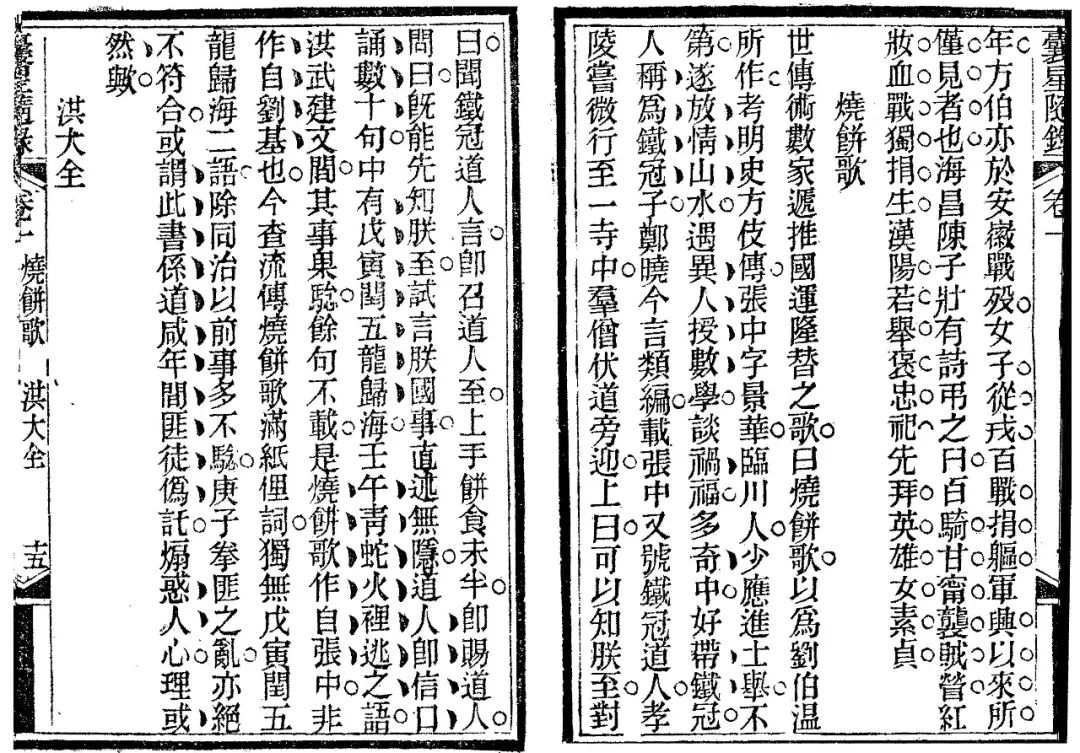 星隨錄 卷一
年方伯亦於安徽戰殁女子從戎百戰捐軀軍興以來所
僅見者也海昌陳子壯有詩弔之曰百騎甘甯襲賊營紅
妝血戰獨捐生漢陽若舉褒忠祀先拜英雄女素貞
燒餅歌
世傳術數家遞推國運隆替之歌曰燒餅歌以爲劉伯温
所作考明史方伎傳張中字景華臨川人少應進士舉不
第遂放情山水遇異人授數學談禍福多奇中好帶鐵冠
人稱爲鐵冠子鄭曉今言類編載張中又號鐵冠道人孝
陵嘗微行至一寺中羣僧伏道旁迎上曰可以知朕至對
曰聞鐵冠道人言卽召道人至上手餅食未半卽賜道人
問曰旣能先知朕至試言朕國事直述無隱道人卽信口
誦數十句中有戊寅閏五龍歸海壬午靑蛇火裡逃之語
洪武建文間其事果騐餘句不載是燒餅歌作自張中非
作自劉基也今查流傳燒餅歌滿紙俚詞獨無戊寅閏五
龍歸海二語除同治以前事多不騐庚子拳匪之亂亦絕
不符合或謂此書係道咸年間匪徒僞託煽惑人心理或
然歟
洪大全
星隨錄 卷一 燒餅歌 洪大全 十五